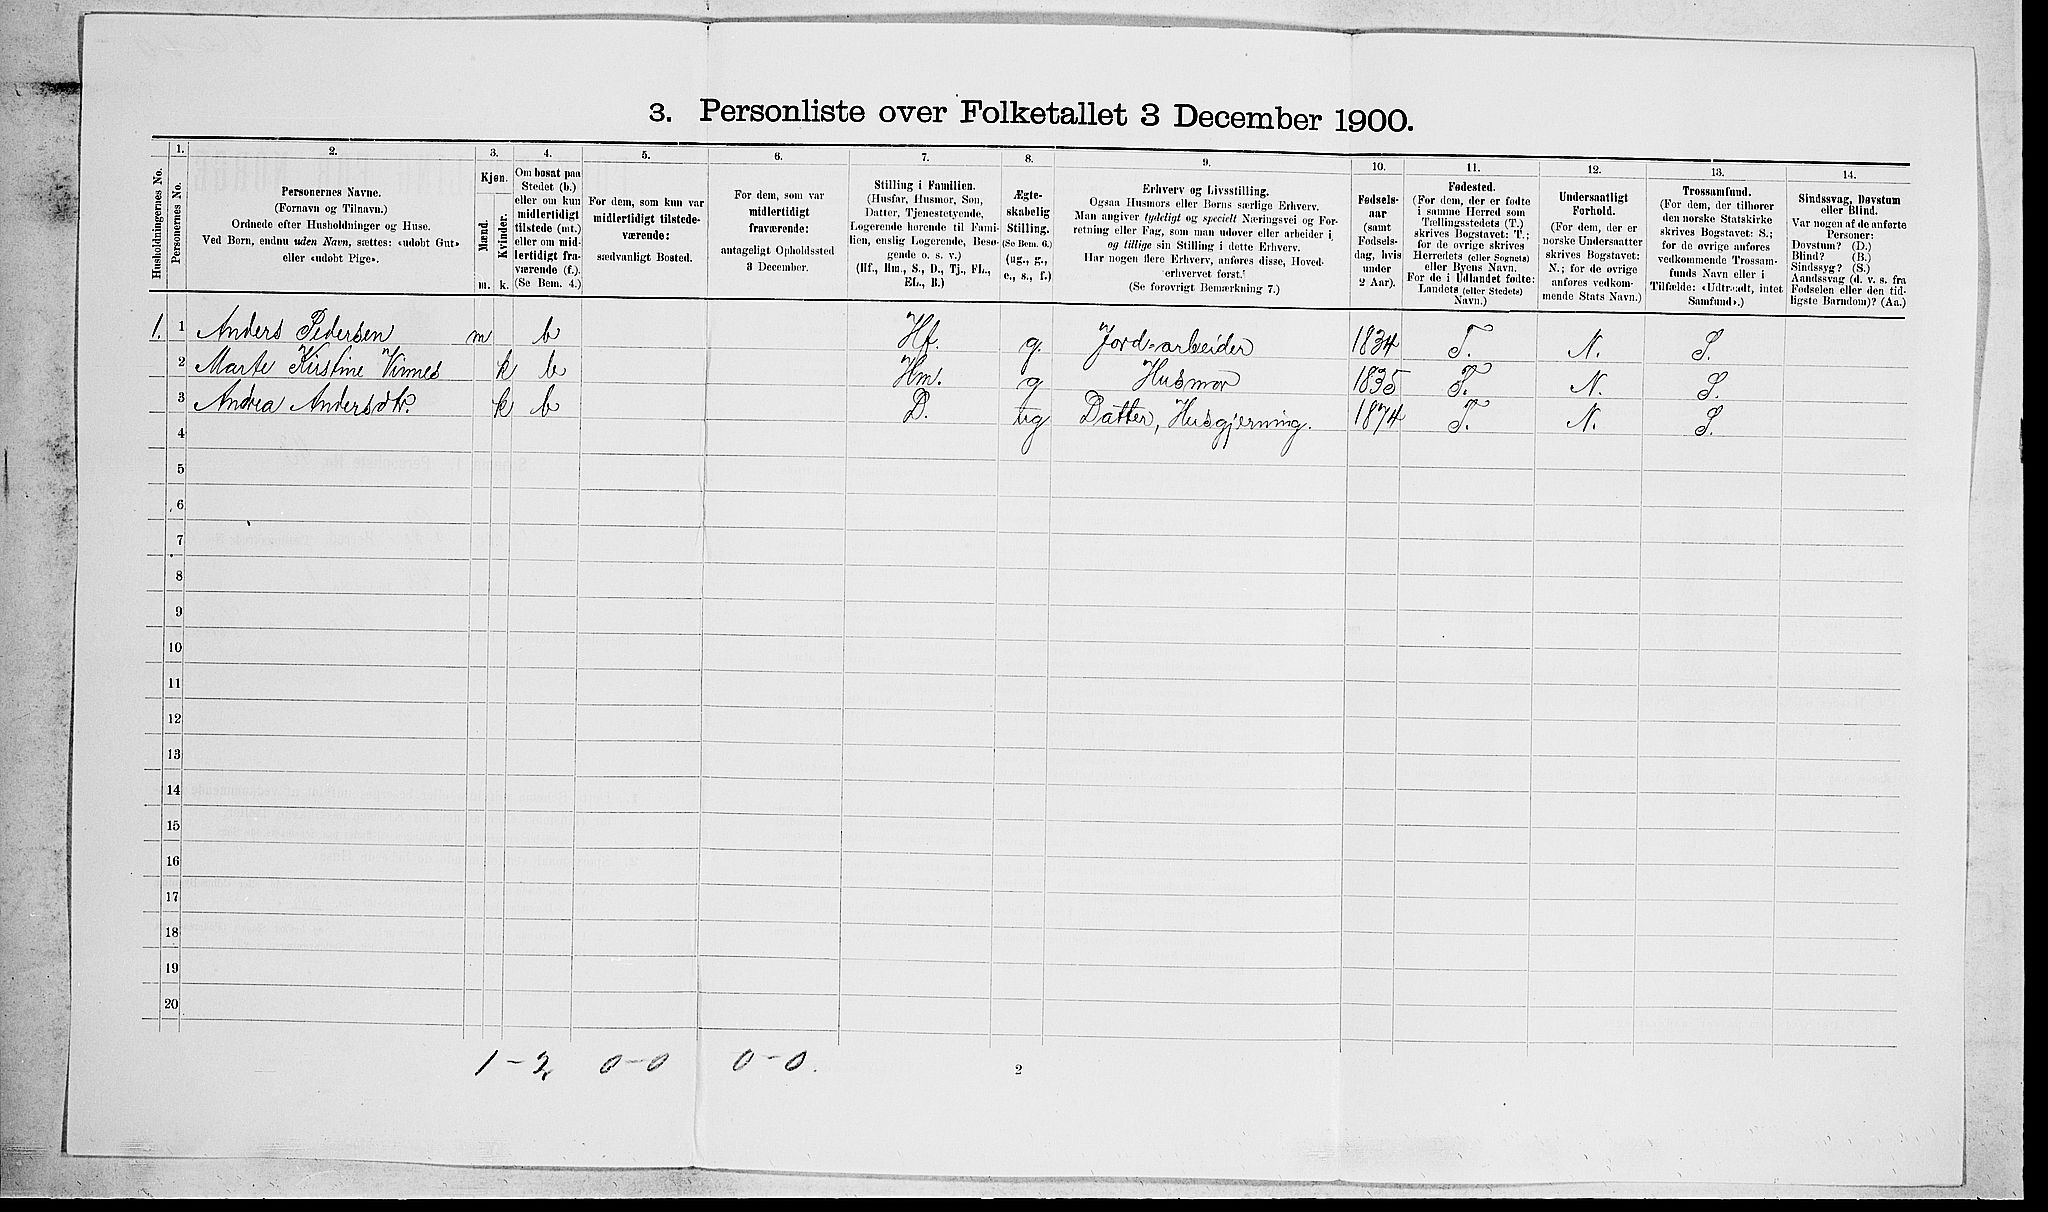 3. Personliste over Folketallet 3 December 1900.
Husholdningernes No.
1.
Personernes No.
2.
Personernes Navne.
(Fornavn og Tilnavn.)
Ordnede efter Husholdninger og Huse.
Ved Børn, endnu uden Navn, sættes: «udøbt Gut»
eller «udøbt Pige».
3.
Kjøn.
Mænd.
Kvinder.
m.
k.
4.
Om bosat paa
Stedet (b.)
eller om kun
midlertidigt
tilstede (mt.)
eller om mid-
lertidigt fra-
værende (f.).
(Se Bem. 4.)
5.
For dem, som kun var
midlertidigt tilstede-
værende:
sædvanligt Bosted.
6.
For dem, som var
midlertidigt
fraværende:
antageligt Opholdssted
3 December.
7.
Stilling i Familien.
(Husfar, Husmor, Søn,
Datter, Tjenestetyende,
Logerende hørende til Fami-
lien, enslig Logerende, Besø-
gende o. s. v.)
(Hf., Hm., S., D., Tj., FL.,
EL., B.)
8.
Ægte-
skabelig
Stilling.
(Se Bem. 6.)
(ug., g.,
e., s., f.)
9.
Erhverv og Livsstilling.
Ogsaa Husmors eller Børns særlige Erhverv.
Man angiver tydeligt og specielt Næringsvei og For-
retning eller Fag, som man udøver eller arbeider i,
og tillige sin Stilling i dette Erhverv.
Har nogen flere Erhverv, anføres disse, Hoved-
erhvervet først.
(Se forøvrigt Bemærkning 7.)
10.
Fødsels-
aar
(samt
Fødsels-
dag, hvis
under
2 Aar).
11.
Fødested.
(For dem, der er fødte
i samme Herred som
Tællingsstedets (T.)
skrives Bogstavet: T.;
for de øvrige skrives
Herredets (eller Sognets)
eller Byens Navn.
For de i Udlandet fødte:
Landets (eller Stedets)
Navn.)
12.
Undersaatligt
Forhold.
(For dem, der er
norske Undersaatter
skrives Bogstavet:
N.; for de øvrige
anføres vedkom-
mende Stats Navn.)
13.
Trossamfund.
(For dem, der tilhører
den norske Statskirke
skrives Bogstavet: S.;
for de øvrige anføres
vedkommende Trossam-
funds Navn eller i
Tilfælde: «Udtraadt, intet
Samfund».)
14.
Sindssvag, Døvstum
eller Blind.
Var nogen af de anførte
Personer:
Døvstum? (D.)
Blind? (B.)
Sindssyg? (S.)
Aandssvag (d. v. s. fra
Fødselen eller den tid-
ligste Barndom)? (Aa.)
1. 1 Anders Pedersen m b Hf. g. Jord-arbeider 1834 T. N. S.
2 Marte Kirstine Vinnes k b Hm. g Husmor 1835 T. N. S.
3 Andrea Andersdtr. k b D. ug Datter, Husgjerning. 1874 T. N. S.
4
5
6
7
8
9
10
11
12
13
14
15
16
17
18
19
20
1 - 2 0-0 0-0.
2